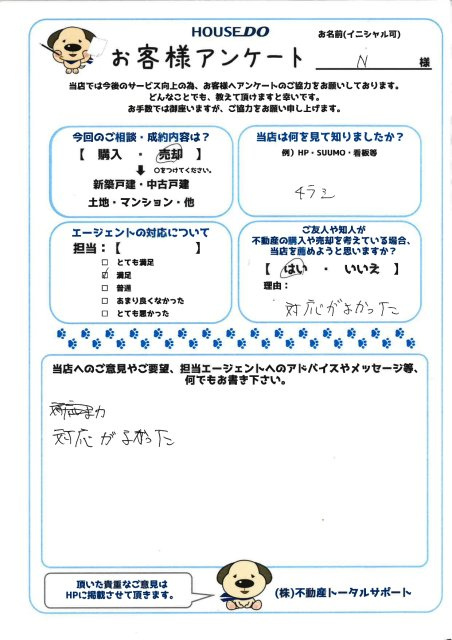 HOUSEDO
お客様アンケート
お名前(イニシャル可)
N 様
当店では今後のサービス向上の為、お客様へアンケートのご協力をお願いしております。
どんなことでも、教えて頂けますと幸いです。
お手数では御座いますが、ご協力をお願い申し上げます。
今回のご相談・成約内容は?
【 購入 ・ 売却 】
○をつけてください。
新築戸建・中古戸建
土地・マンション・他
当店は何を見て知りましたか?
例）HP・SUUMO・看板等
チラシ
エージェントの対応について
担当：【 】
□ とても満足
☑ 満足
□ 普通
□ あまり良くなかった
□ とても悪かった
ご友人や知人が
不動産の購入や売却を考えている場合、
当店を薦めようと思いますか?
【 はい ・ いいえ 】
理由：
対応がよかった
当店へのご意見やご要望、担当エージェントへのアドバイスやメッセージ等、
何でもお書き下さい。
対応がよかった
頂いた貴重なご意見は
HPに掲載させて頂きます。
(株)不動産トータルサポート